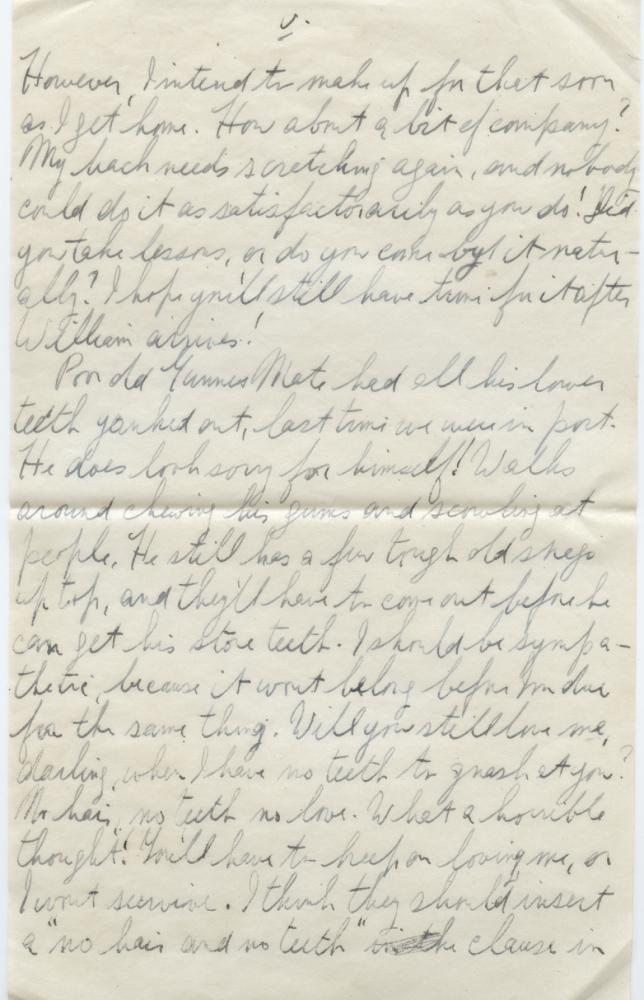 V.
However, I intend to make up for that soon
as I get home. How about a bit of company?
My back needs scretching again, and nobody
could do it as satisfactorarily as you do! Did
you take lessons, or do you come by it natur-
ally? I hope you'll still have time for it after
William arrives!
Poor old Gunners Mate had all his lower
teeth yanked out, last time we were in port.
He does look sorry for himself! Walks
around chewing his gums and scowling at
people. He still has a few tough old snags
up top, and they'll have to come out before he
can get his store teeth. I should be sympa-
thetic, because it wont be long before I'm due
for the same thing. Will you still love me,
darling, when I have no teeth to gnash at you?
No hair, no teeth no love. What a horrible
thought! You'll have to keep on loving me, or
I wont survive. I think they should insert
a "no hair and no teeth" the clause in